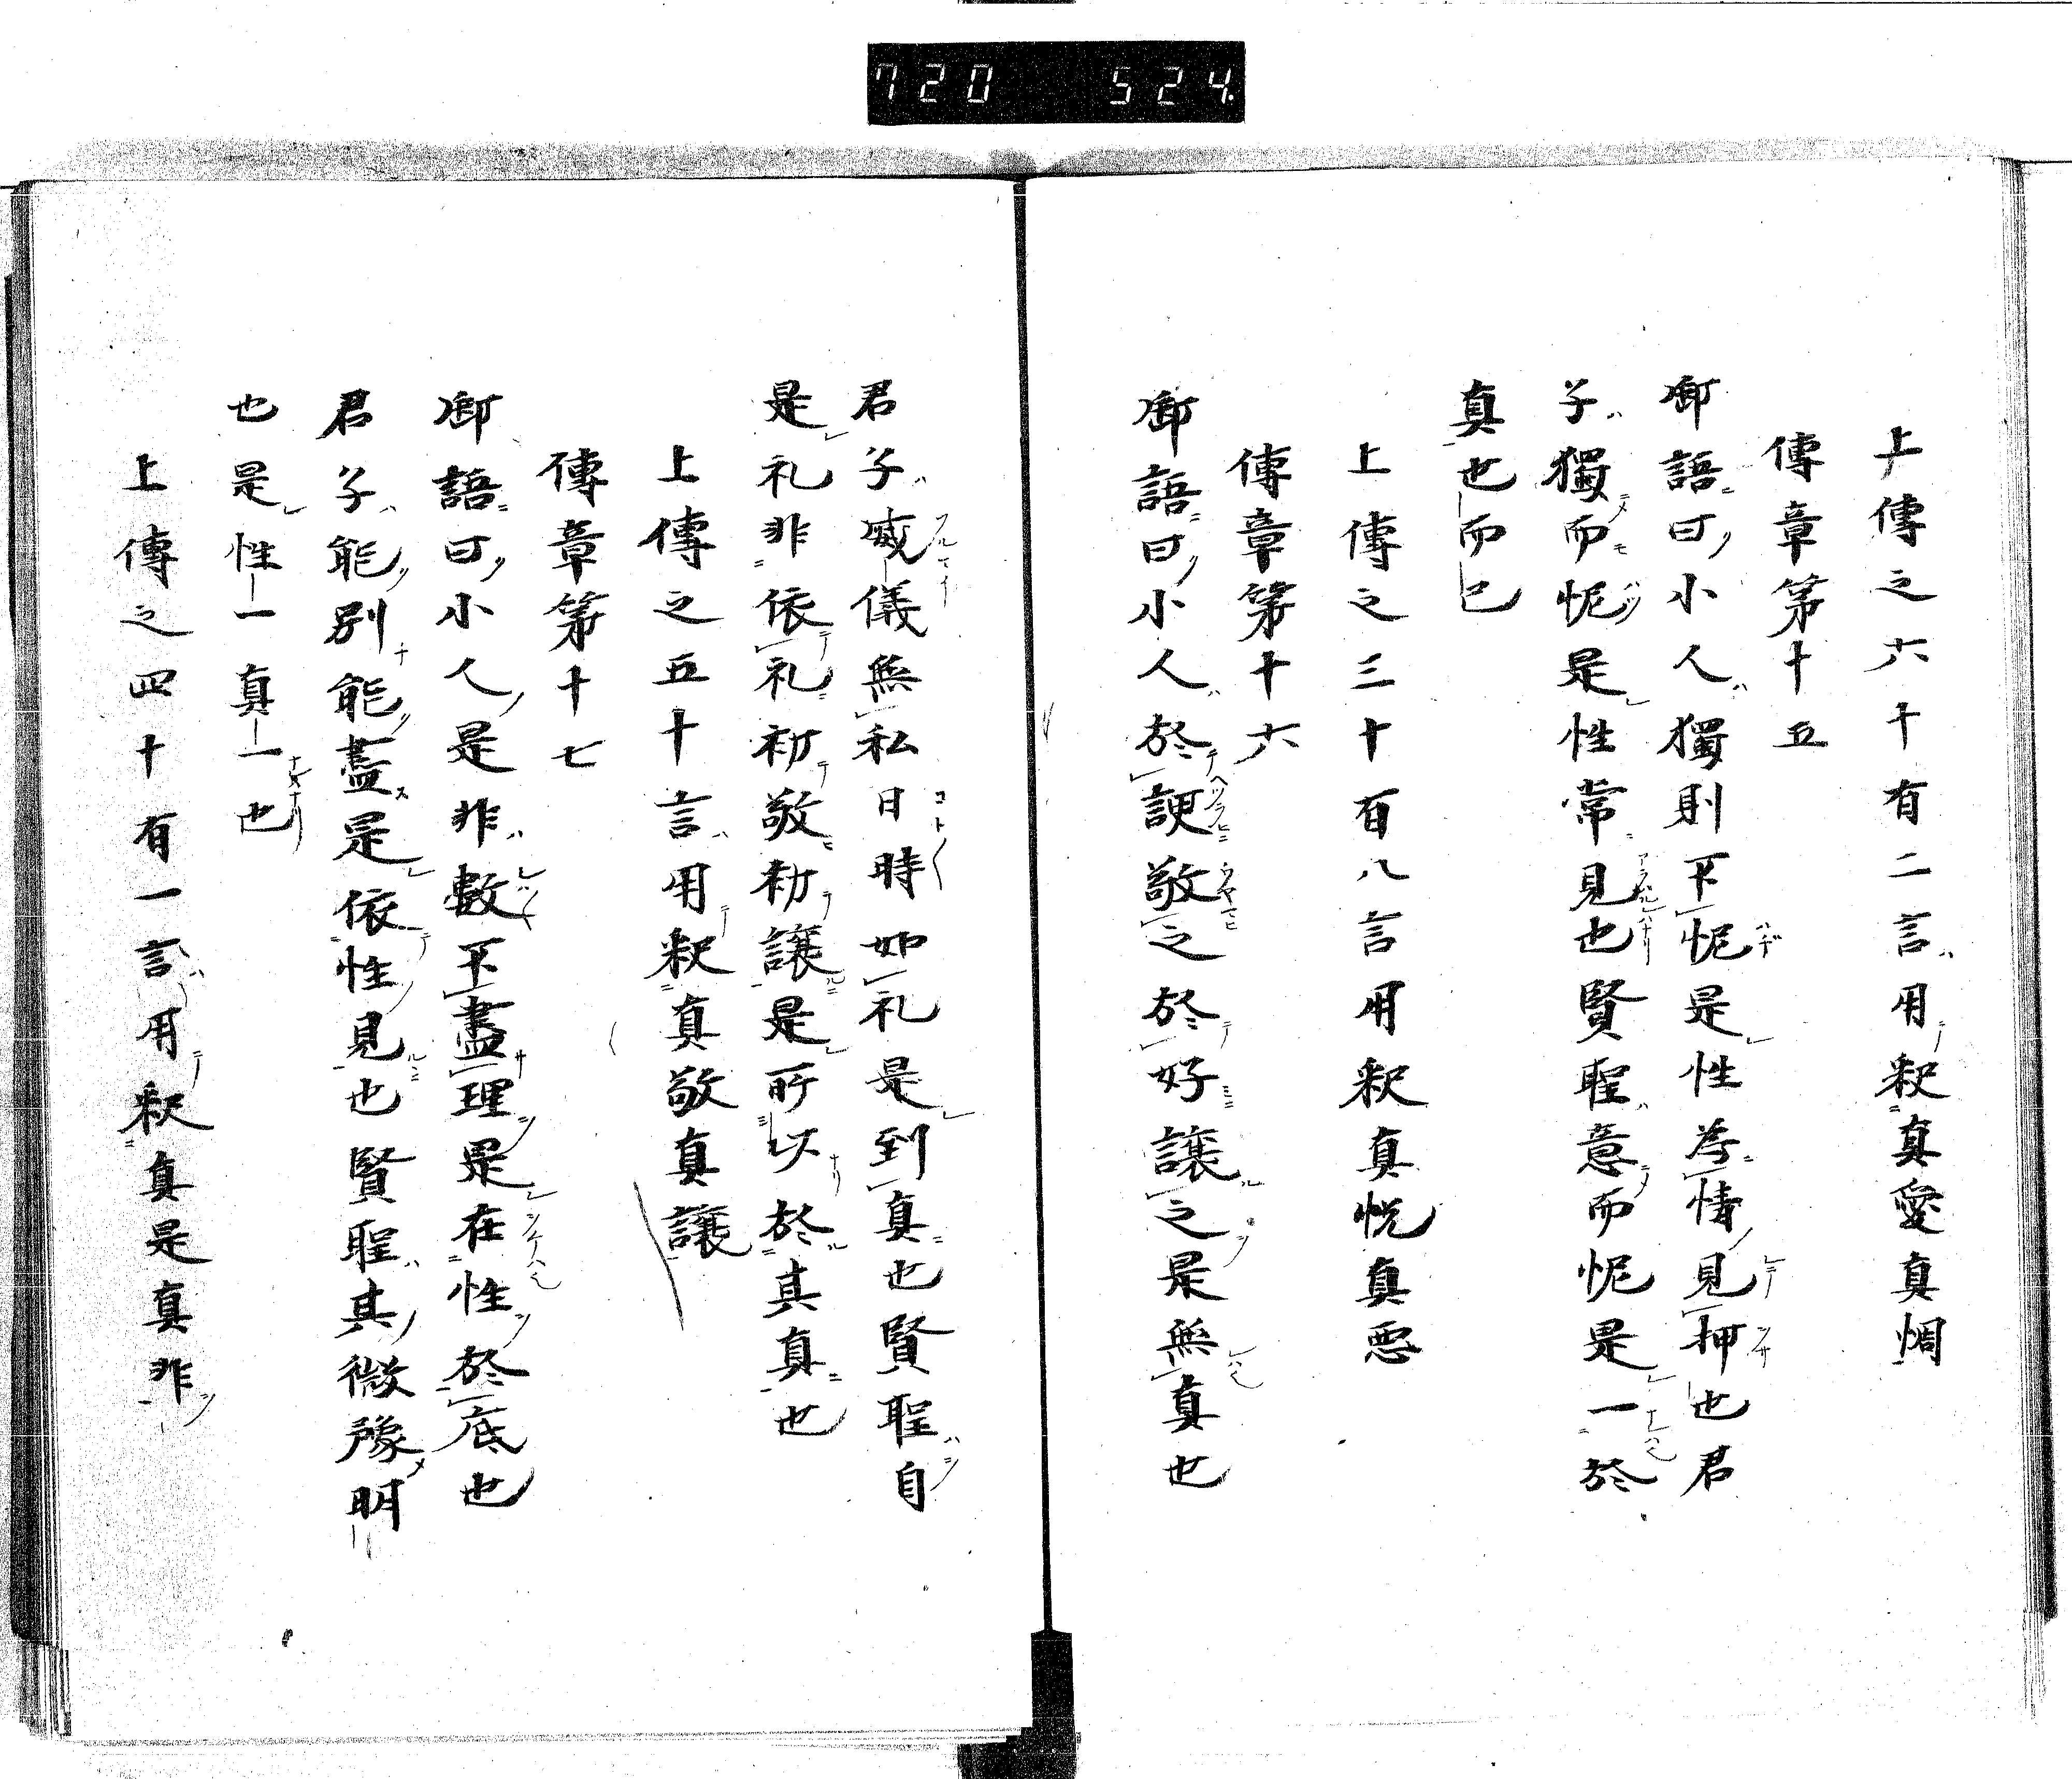 720 524
上傳之六十有二言用釈真愛真惆
傳章第十五
御語曰小人獨則不怩是性為情見押也君
子獨而怩是性常見也賢聖意而怩是一於
真也而已
上傳之三十有八言用釈真悦真悪
傳章第十六
御語曰小人於諛敬之於好讓之是無真也
君子威儀無私日時如礼是到真也賢聖自
是礼非依礼初敬初讓是所以於其真也
上傳之五十言用釈真敬真讓
傳章第十七
御語曰小人是非數不盡理是在性於底也
君子能別能盡是依性見也賢聖其微豫明
也是性一真一也
上傳之四十有一言用釈真是真非